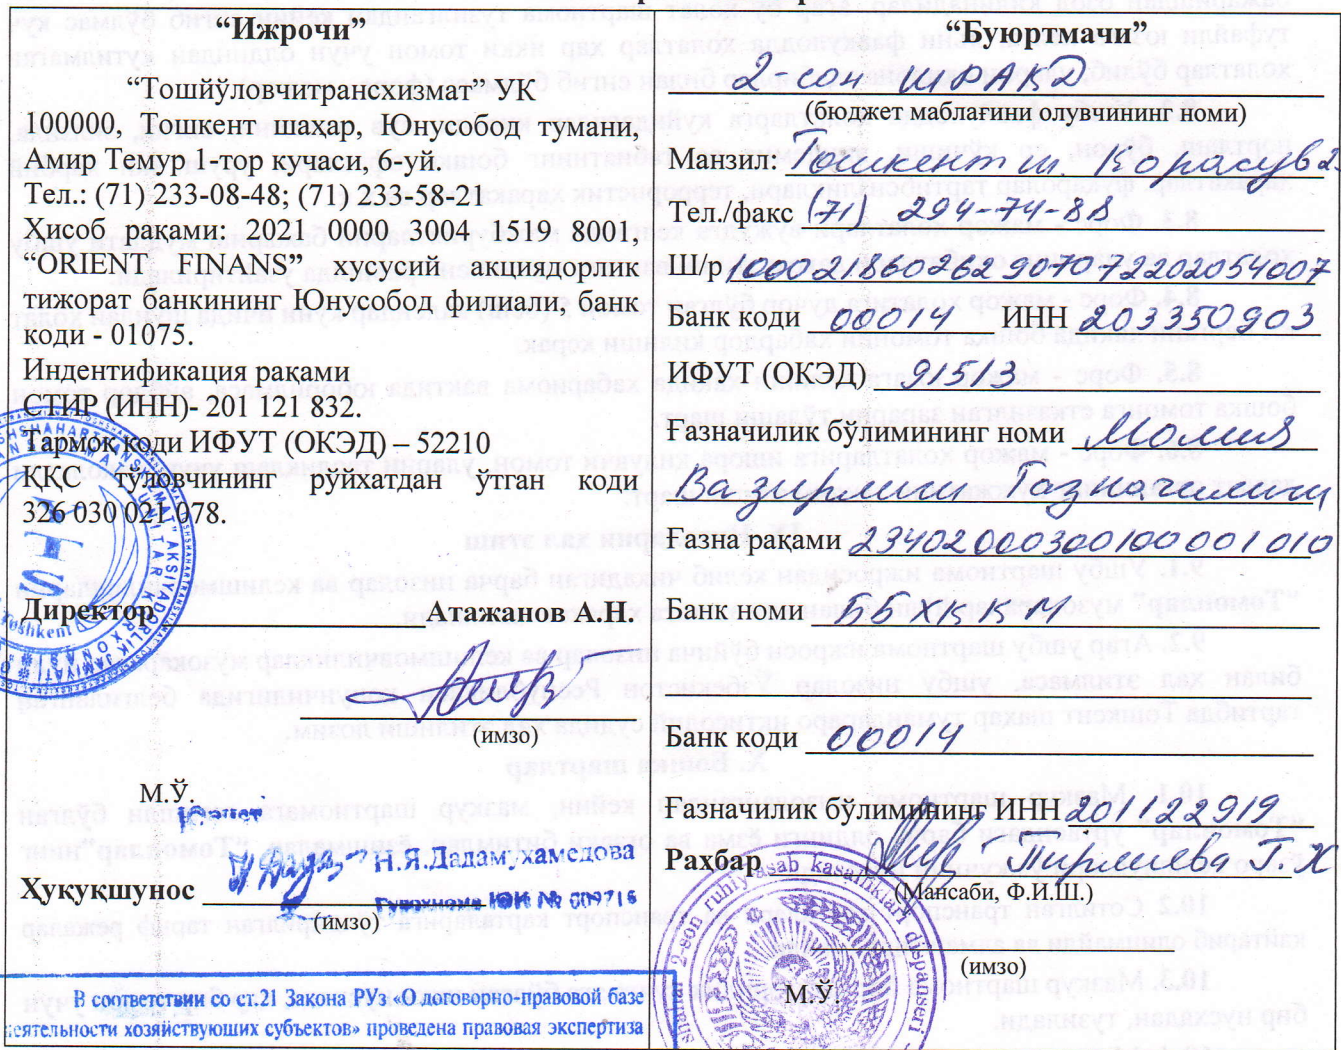 “Ижрочи”
“Тошйўловчитрансхизмат” УК
100000, Тошкент шаҳар, Юнусобод тумани,
Амир Темур 1-тор кучаси, 6-уй.
Тел.: (71) 233-08-48; (71) 233-58-21
Ҳисоб рақами: 2021 0000 3004 1519 8001,
“ORIENT FINANS” хусусий акциядорлик
тижорат банкининг Юнусобод филиали, банк
коди - 01075.
Индентификация рақами
СТИР (ИНН)- 201 121 832.
Тармоқ коди ИФУТ (ОКЭД) – 52210
ҚҚС тўловчининг руйхатдан ўтган коди
326 030 021 078.
Директор Атажанов А.Н.
(имзо)
М.Ў.
Н.Я.Дадамухамедова
Ҳуқуқшунос
Гувоҳнома ЮИ № 009716
(имзо)
В соответствии со ст.21 Закона РУз «О договорно-правовой базе
деятельности хозяйствующих субъектов» проведена правовая экспертиза
“Буюртмачи”
2-сон ШРАКД
(бюджет маблағини олувчининг номи)
Манзил: Тошкент ш. Қорасув 2
Тел./факс (71) 294-74-88
Ш/р 100021860262907072202054007
Банк коди 00014 ИНН 203350903
ИФУТ (ОКЭД) 91513
Ғазначилик бўлимининг номи Молия
Вазирлиги Ғазначилиги
Ғазна рақами 23402000300100001010
Банк номи ББ ХККМ
Банк коди 00014
Ғазначилик бўлимининг ИНН 201122919
Рахбар Пирлиева Г.Х
(Мансаби, Ф.И.Ш.)
(имзо)
М.Ў.
2-son ruhiy asab kasalliklari dispanseri